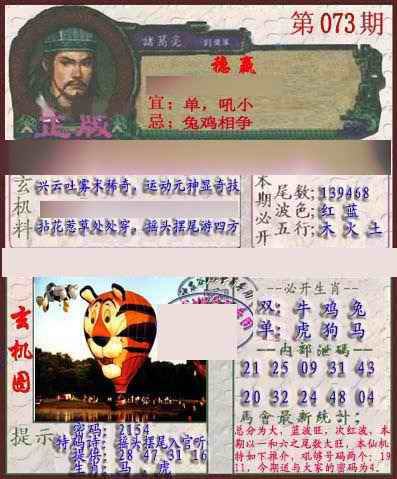 第073期
諸葛亮
稳赢
宜：单，吼小
忌：兔鸡相争
正版
玄机料
兴云吐雾未稀奇，运动元神显奇技
拈花惹草处处穿，摇头摆尾游四方
本期必开
尾数;139468
波色;红 蓝
五行;木 火 土
玄机图
一必开生肖一
双：牛 鸡 兔
单：虎 狗 马
内部泄码
21 25 09 31 43
20 32 24 48 04
馬會最新统计;
总分为大，蓝波旺，次红波，本
期以一和六之尾数大旺，本仙机
特如下推介，吼够号码两个：19
11，今期送与大家的密码为4.
提示
密码：2154
特码诗：摇头摆尾入官听
28 47 31 16
生肖：马．虎